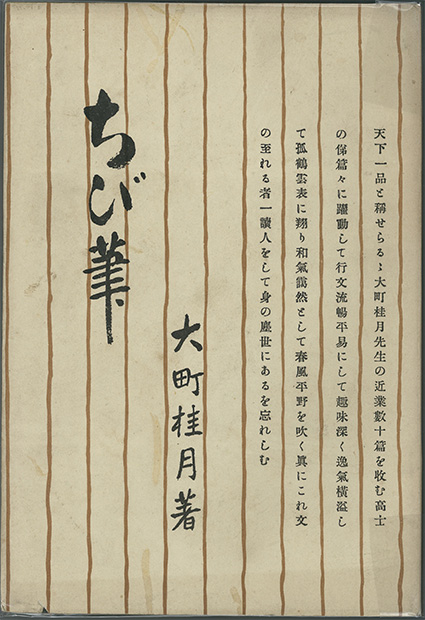 天下一品と稱せらるゝ大町桂月先生の近業數十篇を收む高士
の俤篇々に躍動して行文流暢平易にして趣味深く逸氣橫溢し
て孤鶴雲表に翔り和氣靄然として春風平野を吹く眞にこれ文
の至れる者一讀人をして身の塵世にあるを忘れしむ
大町桂月著
ちび筆